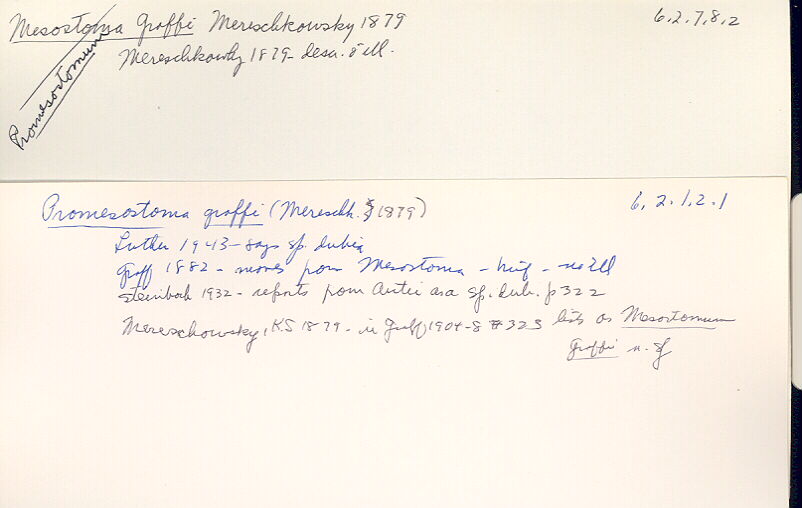 Mesostoma Graffi Mereschkowsky 1879 6.2.7.8.2
Mereschkowsky 1879 - descr. & ill.
Promesostomum
Promesostoma graffi (Mereschk. 1879) 6.2.1.2.1
Luther 1943 - says sp. dubia
Graff 1882 - moves from Mesostoma - brief - no ill
Steinbock 1932 - reports from Arctic as a sp. dub. p 322
Mereschowsky, K.S 1879 - in Graff 1904-8 # 323 lists as Mesostomum
Graffi n. sp